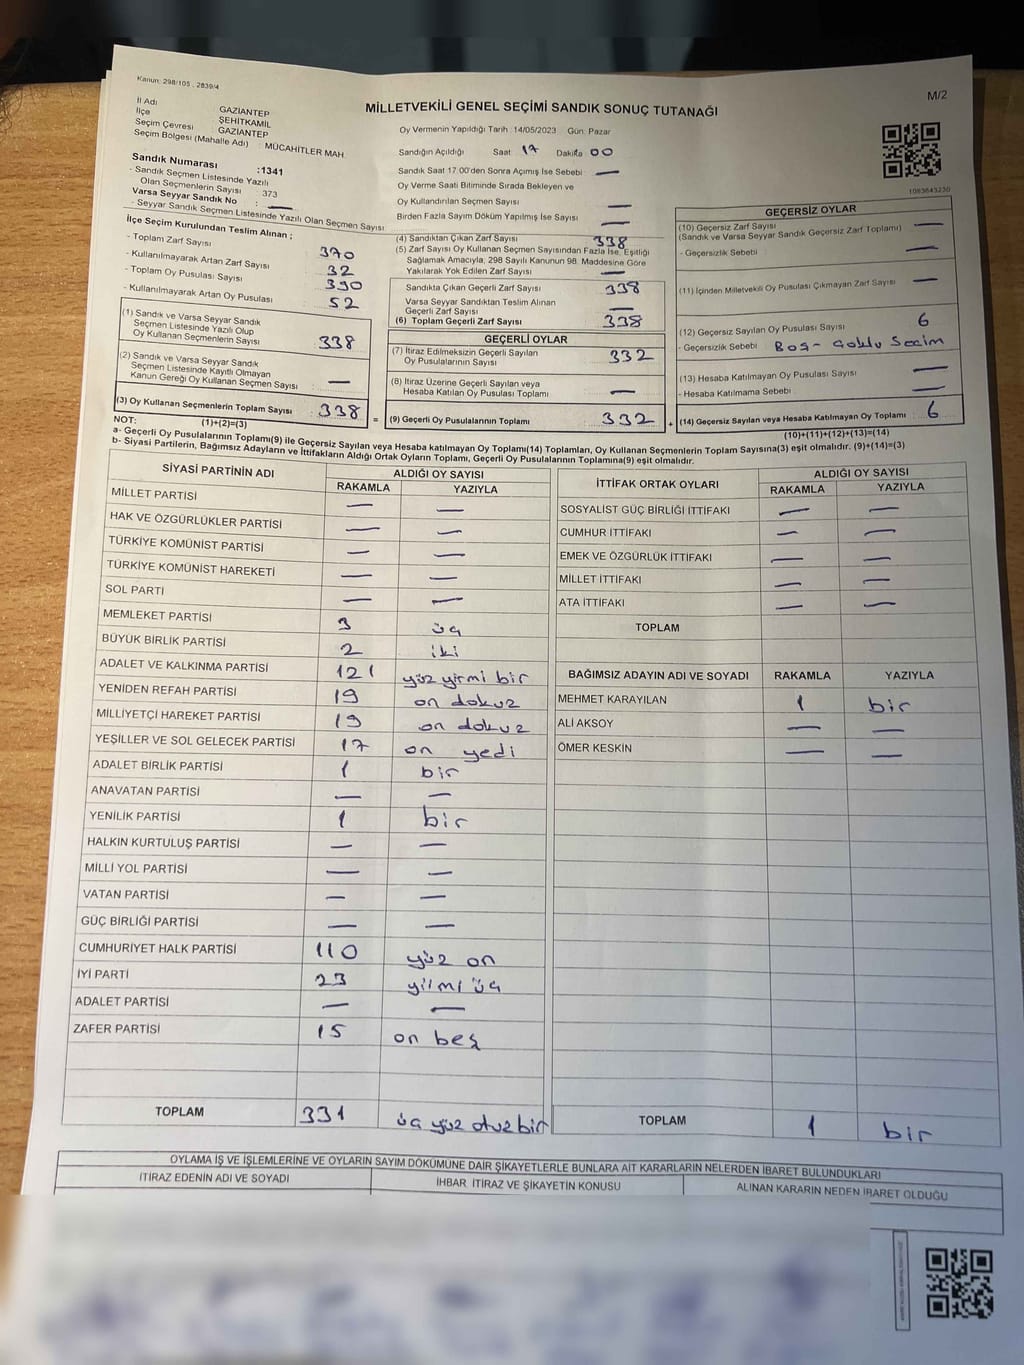 Kanun: 298/105 , 2839/4
M/2
MİLLETVEKİLİ GENEL SEÇİMİ SANDIK SONUÇ TUTANAĞI
İl Adı GAZİANTEP
İlçe ŞEHİTKAMİL
Seçim Çevresi GAZİANTEP
Seçim Bölgesi (Mahalle Adı) : MÜCAHİTLER MAH.
Oy Vermenin Yapıldığı Tarih : 14/05/2023 Gün: Pazar
Sandığın Açıldığı Saat 17 Dakika 00
Sandık Saat 17.00'den Sonra Açımış İse Sebebi —
Oy Verme Saati Bitiminde Sırada Bekleyen ve
Oy Kullandırılan Seçmen Sayısı —
Birden Fazla Sayım Döküm Yapılmış İse Sayısı —
1083643230
Sandık Numarası :1341
- Sandık Seçmen Listesinde Yazılı
Olan Seçmenlerin Sayısı : 373
Varsa Seyyar Sandık No : —
- Seyyar Sandık Seçmen Listesinde Yazılı Olan Seçmen Sayısı
İlçe Seçim Kurulundan Teslim Alınan ;
- Toplam Zarf Sayısı 370
- Kullanılmayarak Artan Zarf Sayısı 32
- Toplam Oy Pusulası Sayısı 390
- Kullanılmayarak Artan Oy Pusulası 52
(1) Sandık ve Varsa Seyyar Sandık
Seçmen Listesinde Yazılı Olup
Oy Kullanan Seçmenlerin Sayısı 338
(2) Sandık ve Varsa Seyyar Sandık
Seçmen Listesinde Kayıtlı Olmayan
Kanun Gereği Oy Kullanan Seçmen Sayısı —
(3) Oy Kullanan Seçmenlerin Toplam Sayısı : 338
(1)+(2)=(3)
(4) Sandıktan Çıkan Zarf Sayısı 338
(5) Zarf Sayısı Oy Kullanan Seçmen Sayısından Fazla İse, Eşitliği
Sağlamak Amacıyla, 298 Sayılı Kanunun 98. Maddesine Göre
Yakılarak Yok Edilen Zarf Sayısı —
Sandıkta Çıkan Geçerli Zarf Sayısı 338
Varsa Seyyar Sandıktan Teslim Alınan
Geçerli Zarf Sayısı —
(6) Toplam Geçerli Zarf Sayısı 338
GEÇERLİ OYLAR
(7) İtiraz Edilmeksizin Geçerli Sayılan
Oy Pusulalarının Sayısı 332
(8) İtiraz Üzerine Geçerli Sayılan veya
Hesaba Katılan Oy Pusulası Toplamı —
= (9) Geçerli Oy Pusulalarının Toplamı 332 +
GEÇERSİZ OYLAR
(10) Geçersiz Zarf Sayısı
(Sandık ve Varsa Seyyar Sandık Geçersiz Zarf Toplamı) —
- Geçersizlik Sebebi : —
(11) İçinden Milletvekili Oy Pusulası Çıkmayan Zarf Sayısı —
(12) Geçersiz Sayılan Oy Pusulası Sayısı 6
- Geçersizlik Sebebi Boş- Çoklu Seçim
(13) Hesaba Katılmayan Oy Pusulası Sayısı —
- Hesaba Katılmama Sebebi : —
(14) Geçersiz Sayılan veya Hesaba Katılmayan Oy Toplamı : 6
(10)+(11)+(12)+(13)=(14)
NOT:
a- Geçerli Oy Pusulalarının Toplamı(9) ile Geçersiz Sayılan veya Hesaba katılmayan Oy Toplamı(14) Toplamları, Oy Kullanan Seçmenlerin Toplam Sayısına(3) eşit olmalıdır. (9)+(14)=(3)
b- Siyasi Partilerin, Bağımsız Adayların ve İttifakların Aldığı Ortak Oyların Toplamı, Geçerli Oy Pusulalarının Toplamına(9) eşit olmalıdır.
SİYASİ PARTİNİN ADI ALDIĞI OY SAYISI
RAKAMLA YAZIYLA
MİLLET PARTİSİ — —
HAK VE ÖZGÜRLÜKLER PARTİSİ — —
TÜRKİYE KOMÜNİST PARTİSİ — —
TÜRKİYE KOMÜNİST HAREKETİ — —
SOL PARTİ — —
MEMLEKET PARTİSİ 3 üç
BÜYÜK BİRLİK PARTİSİ 2 iki
ADALET VE KALKINMA PARTİSİ 121 yüz yirmi bir
YENİDEN REFAH PARTİSİ 19 on dokuz
MİLLİYETÇİ HAREKET PARTİSİ 19 on dokuz
YEŞİLLER VE SOL GELECEK PARTİSİ 17 on yedi
ADALET BİRLİK PARTİSİ 1 bir
ANAVATAN PARTİSİ — —
YENİLİK PARTİSİ 1 bir
HALKIN KURTULUŞ PARTİSİ — —
MİLLİ YOL PARTİSİ — —
VATAN PARTİSİ — —
GÜÇ BİRLİĞİ PARTİSİ — —
CUMHURİYET HALK PARTİSİ 110 yüz on
İYİ PARTİ 23 yilmi üç
ADALET PARTİSİ — —
ZAFER PARTİSİ 15 on beş
TOPLAM 331 üç yüz otuz bir
İTTİFAK ORTAK OYLARI ALDIĞI OY SAYISI
RAKAMLA YAZIYLA
SOSYALİST GÜÇ BİRLİĞİ İTTİFAKI — —
CUMHUR İTTİFAKI — —
EMEK VE ÖZGÜRLÜK İTTİFAKI — —
MİLLET İTTİFAKI — —
ATA İTTİFAKI — —
TOPLAM
BAĞIMSIZ ADAYIN ADI VE SOYADI RAKAMLA YAZIYLA
MEHMET KARAYILAN 1 bir
ALİ AKSOY — —
ÖMER KESKİN — —
TOPLAM 1 bir
OYLAMA İŞ VE İŞLEMLERİNE VE OYLARIN SAYIM DÖKÜMÜNE DAİR ŞİKAYETLERLE BUNLARA AİT KARARLARIN NELERDEN İBARET BULUNDUKLARI
İTİRAZ EDENİN ADI VE SOYADI İHBAR İTİRAZ VE ŞİKAYETİN KONUSU ALINAN KARARIN NEDEN İBARET OLDUĞU